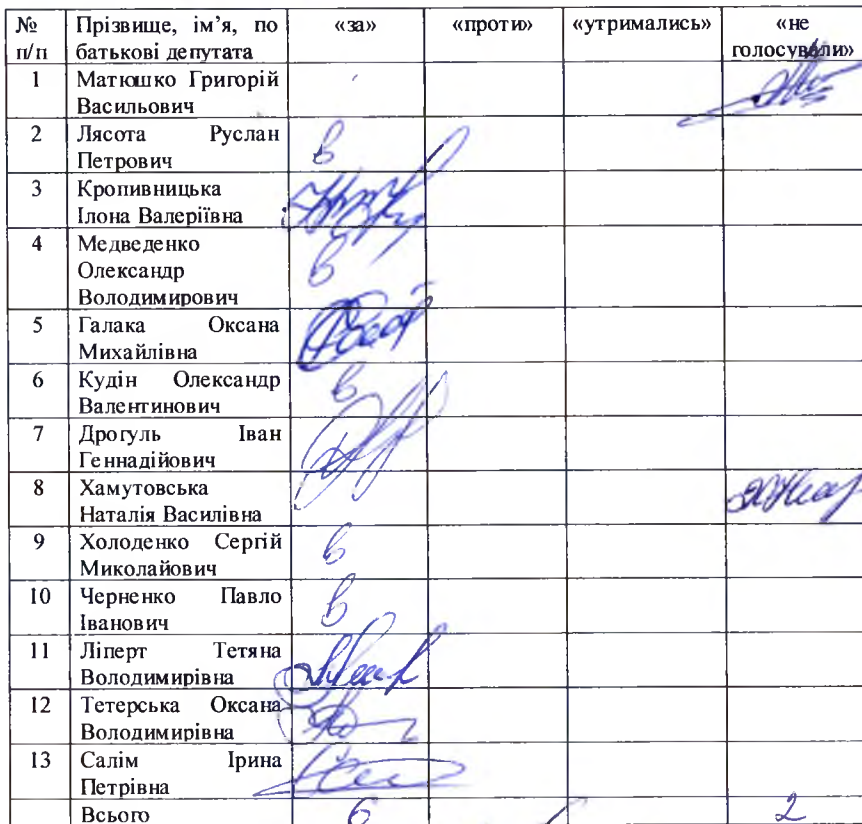 № п/п Прізвище, ім’я, по батькові депутата «за» «проти» «утримались» «не голосували»
1 Матюшко Григорій Васильович
2 Лясота Руслан Петрович в
3 Кропивницька Ілона Валеріївна
4 Медведенко Олександр Володимирович в
5 Галака Оксана Михайлівна
6 Кудін Олександр Валентинович в
7 Дрогуль Іван Геннадійович
8 Хамутовська Наталія Василівна
9 Холоденко Сергій Миколайович в
10 Черненко Павло Іванович в
11 Ліперт Тетяна Володимирівна
12 Тетерська Оксана Володимирівна
13 Салім Ірина Петрівна
Всього 6 2